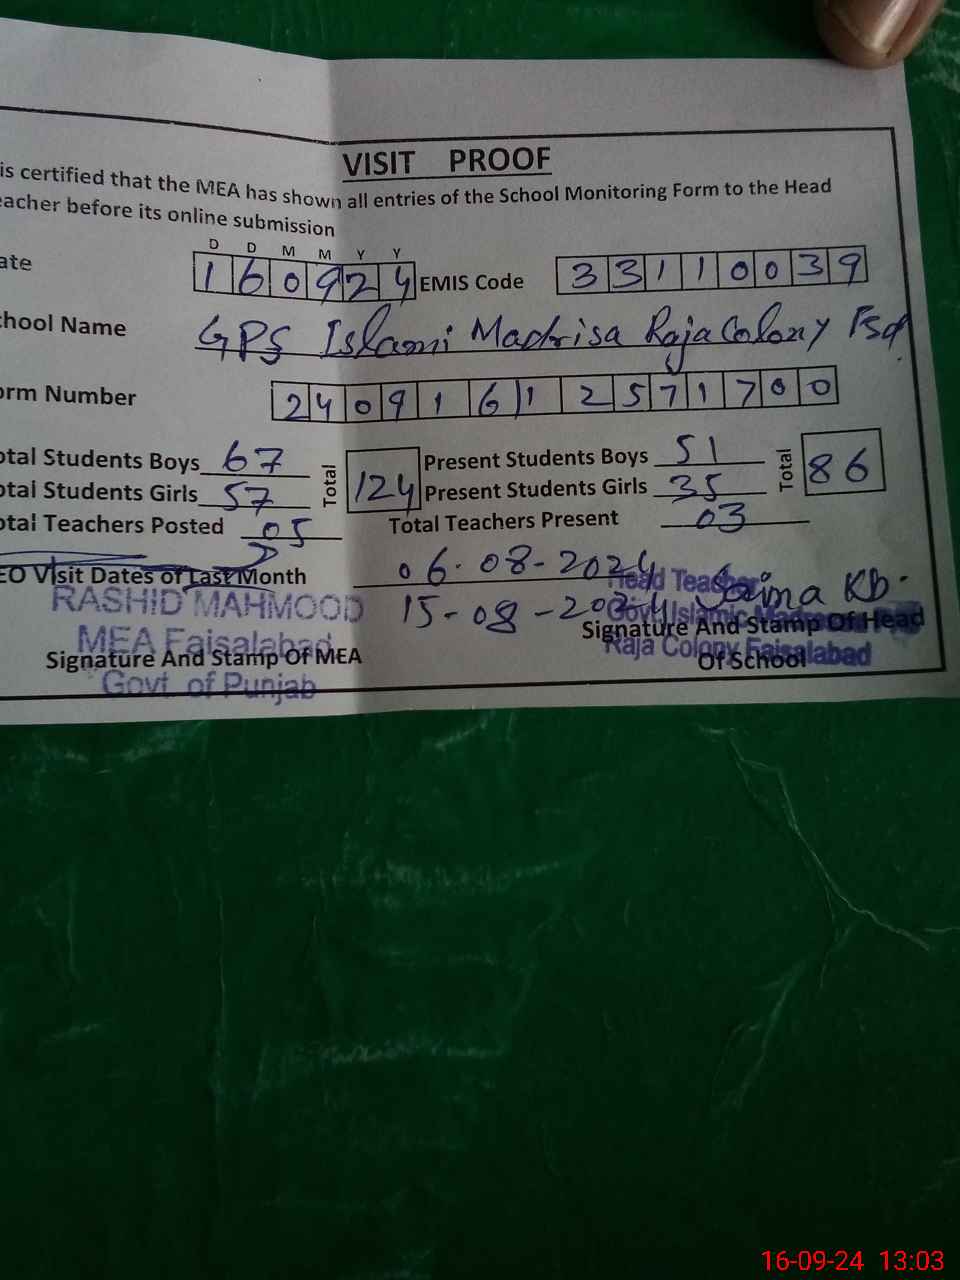 VISIT PROOF
is certified that the MEA has shown all entries of the School Monitoring Form to the Head
eacher before its online submission
D D M M Y Y
ate 160924 EMIS Code 33110039
chool Name GPS Islami Madrisa Raja Colony Fsd.
orm Number 24091612571700
otal Students Boys 67 Total 124 Present Students Boys 51 Total 86
otal Students Girls 57 Present Students Girls 35
otal Teachers Posted 05 Total Teachers Present 03
EO Visit Dates of Last Month 06-08-2024
15-08-2024
RASHID MAHMOOD
MEA Faisalabad
Govt. of Punjab
Signature And Stamp Of MEA
Head Teacher
Govt. Islamic
Raja Colony Faisalabad
Signature And Stamp Of Head
Of School
16-09-24 13:03